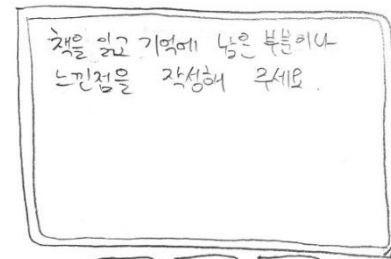 책을 읽고 기억에 남은 부분이나
느낀점을 작성해 주세요.